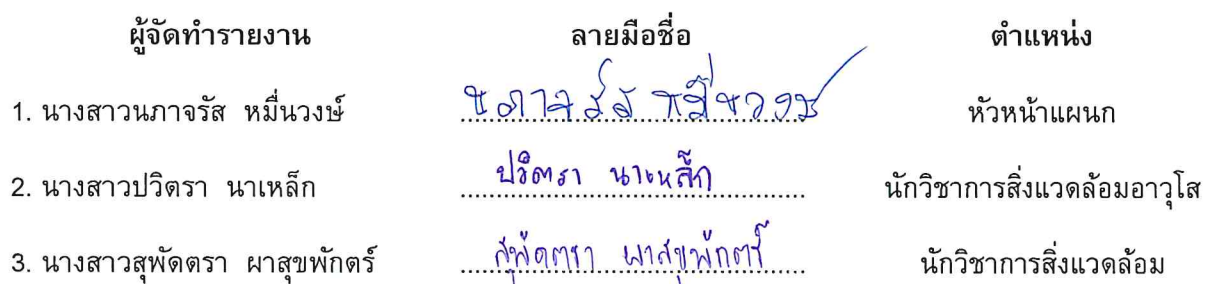 ผู้จัดทำรายงาน ลายมือชื่อ ตำแหน่ง
1. นางสาวนภาจรัส หมื่นวงษ์ นภาจรัส หมื่นวงษ์ หัวหน้าแผนก
2. นางสาวปวิตรา นาเหล็ก ปวิตรา นาเหล็ก นักวิชาการสิ่งแวดล้อมอาวุโส
3. นางสาวสุพัดตรา ผาสุขพักตร์ สุพัดตรา ผาสุขพักตร์ นักวิชาการสิ่งแวดล้อม